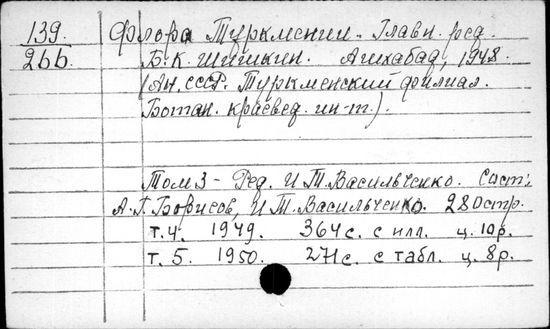 139. Флора Туркмении. Главн. ред.
266. Б. К. Шишкин. Ашхабад, 1948.
(Ан. СССР. Туркменский филиал.
Ботан. краевед. ин-т.).
Том 3 - Ред. И. Т. Васильченко. Сост:
А. Г. Борисов, И. Т. Васильченко. 280 стр.
т. 4. 1949. 364 с. с илл. ц. 10 р.
т. 5. 1950. 271 с. с табл. ц. 8 р.